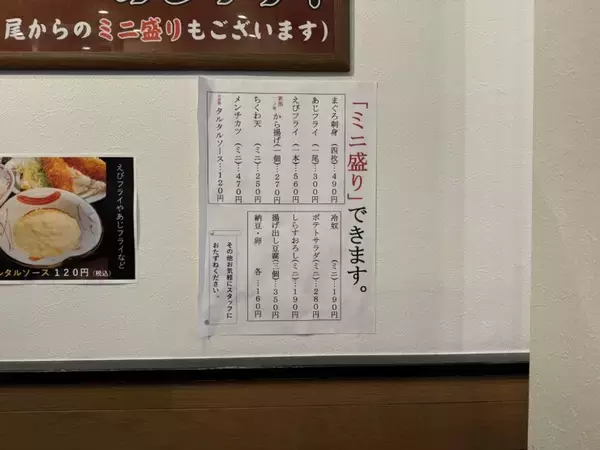 尾からのミニ盛りもございます)
「ミニ盛り」できます。
まぐろ刺身(四枚)…490円
あじフライ(一尾)…300円
えびフライ(一本)…560円
から揚げ(一個)…270円
ちくわ天(ミニ)…250円
メンチカツ(ミニ)…470円
タルタルソース…120円
冷奴(ミニ)…190円
ポテトサラダ(ミニ)…280円
しらすおろし(ミニ)…190円
揚げ出し豆腐(三個)…350円
納豆・卵 各…160円
その他お気軽にスタッフに
おたずねください。
えびフライやあじフライなど
ルタルソース 120円(税込)